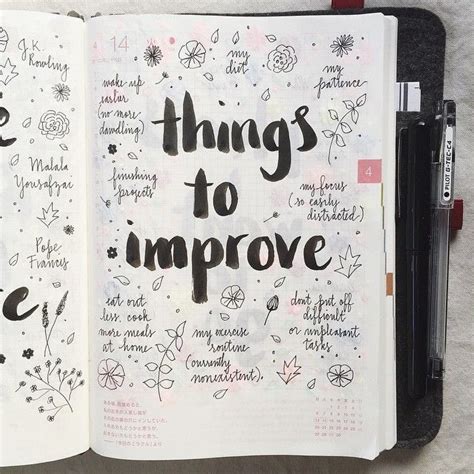 J.K.
Rowling
Malala
Yousafzai
Pope
Francis
4
14
my
diet
my
patience
wake up
earlier
(no more
dawdling)
things
to
improve
finishing
projects
4
my focus
(so easily
distracted)
eat out
less, cook
more meals
at home
my exercise
routine
(currently
nonexistent).
don't put off
difficult
or unpleasant
tasks
PILOT G-TEC-C4